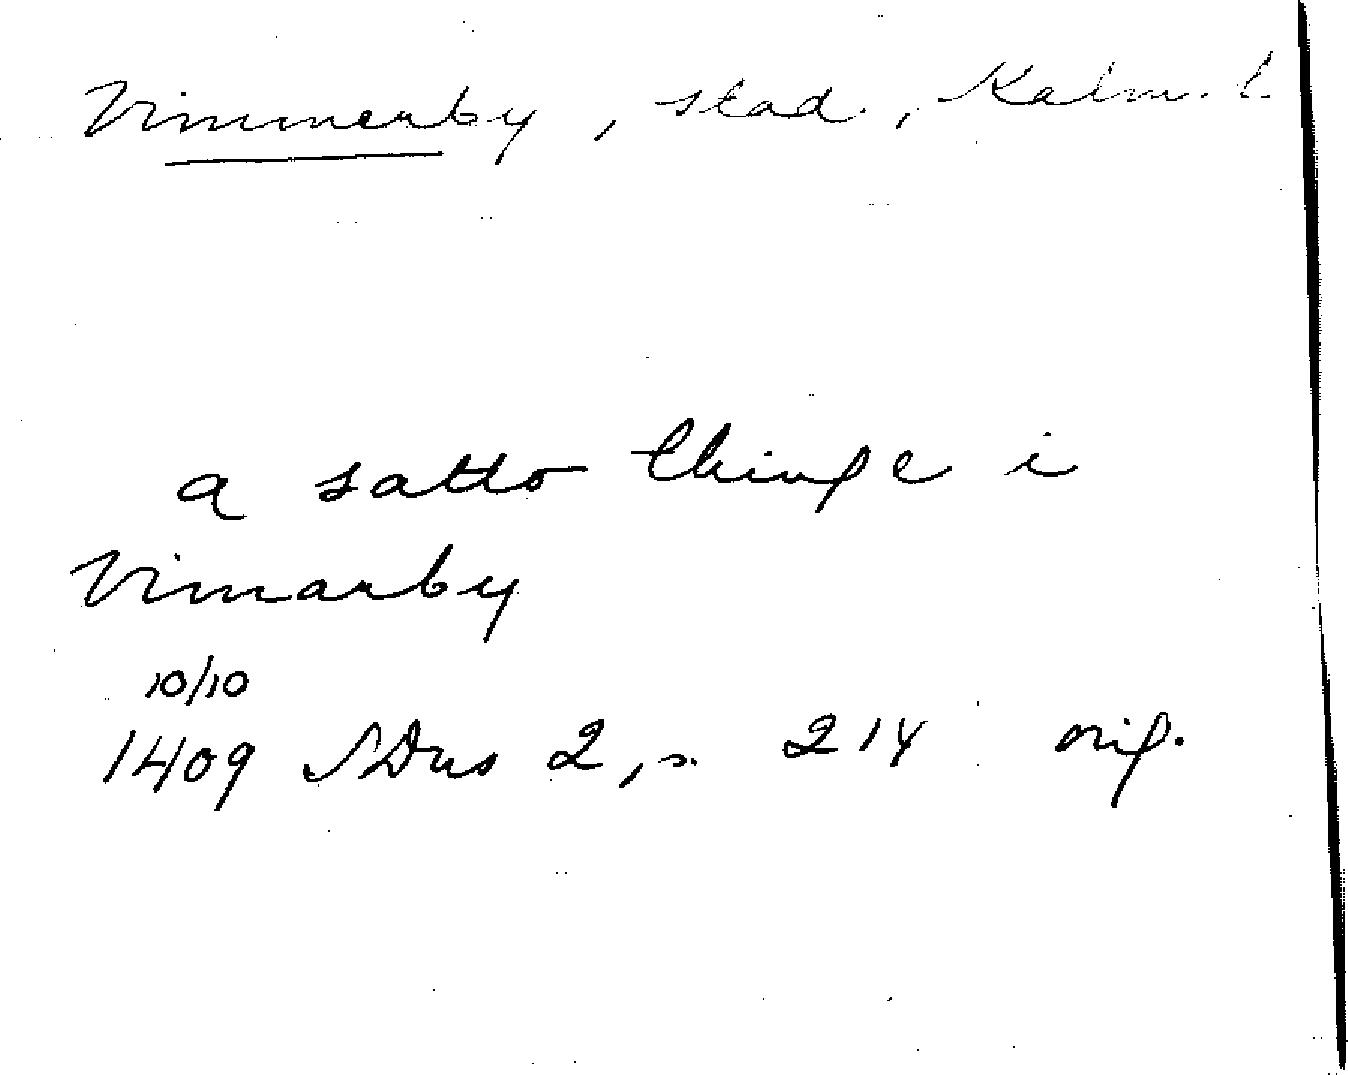 Vimmerby, stad, Kalm. l.
a satto thinge i
Vimarby
10/10
1409 SDns 2, s. 214 orig.